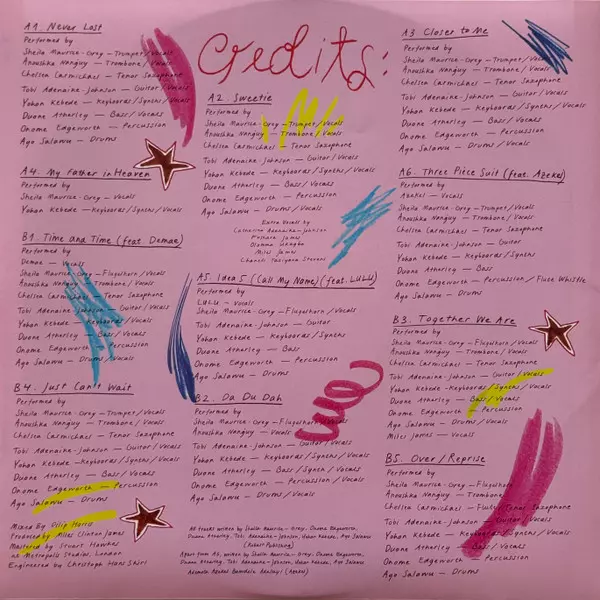 Credits:
A1. Never Lost
Performed by
Sheila Maurice-Grey - Trumpet/Vocals
Anoushka Nanguy - Trombone/Vocals
Chelsea Carmichael - Tenor Saxophone
Tobi Adenaine-Johnson - Guitar/Vocals
Yohan Kebede - Keyboards/Synths/Vocals
Duane Atherley - Bass/Vocals
Onome Edgeworth - Percussion
Ayo Salawu - Drums
A2. Sweetie
Performed by
Sheila Maurice-Grey - Trumpet/Vocals
Anoushka Nanguy - Trombone/Vocals
Chelsea Carmichael - Tenor Saxophone
Tobi Adenaine-Johnson - Guitar/Vocals
Yohan Kebede - Keyboards/Synths/Vocals
Duane Atherley - Bass/Vocals
Onome Edgeworth - Percussion
Ayo Salawu - Drums/Vocals
Extra Vocals by
Catherine Adenaine-Johnson
James
Miles James
Stevens
A3 Closer to Me
Performed by
Sheila Maurice-Grey - Trumpet/Vocals
Anoushka Nanguy - Trombone/Vocals
Chelsea Carmichael - Tenor Saxophone
Tobi Adenaine-Johnson - Guitar/Vocals
Yohan Kebede - Keyboards/Synths/Vocals
Duane Atherley - Bass/Vocals
Onome Edgeworth - Percussion
Ayo Salawu - Drums/Vocals
A4. My Father in Heaven
Performed by
Sheila Maurice-Grey - Vocals
Yohan Kebede - Keyboards/Synths/Vocals
A5. Idea 5 (Call My Name) (feat. LULU)
Performed by
LULU. - Vocals
Sheila Maurice-Grey - Flugelhorn/Vocals
Tobi Adenaine-Johnson - Guitar
Yohan Kebede - Keyboards/Synths
Duane Atherley - Bass
Onome Edgeworth - Percussion
Ayo Salawu - Drums
A6. Three Piece Suit (feat. Azekel)
Performed by
Azekel - Vocals
Sheila Maurice-Grey - Trumpet/Vocals
Anoushka Nanguy - Trombone/Vocals
Chelsea Carmichael - Tenor Saxophone
Tobi Adenaine-Johnson - Guitar
Yohan Kebede - Keyboards/Synths
Duane Atherley - Bass
Onome Edgeworth - Percussion/Flute Whistle
Ayo Salawu - Drums
B1. Time and Time (feat. Demae)
Performed by
Demae - Vocals
Sheila Maurice-Grey - Flugelhorn/Vocals
Anoushka Nanguy - Trombone/Vocals
Chelsea Carmichael - Tenor Saxophone
Tobi Adenaine-Johnson - Guitar/Vocals
Yohan Kebede - Keyboards/Vocals
Duane Atherley - Bass/Vocals
Onome Edgeworth - Percussion
Ayo Salawu - Drums/Vocals
B2. Da Du Dah
Performed by
Sheila Maurice-Grey - Flugelhorn/Vocals
Anoushka Nanguy - Trombone/Vocals
Tobi Adenaine-Johnson - Guitar/Vocals
Yohan Kebede - Keyboards/Vocals
Duane Atherley - Bass/Synth/Vocals
Onome Edgeworth - Percussion
Ayo Salawu - Drums/Vocals
B3. Together We Are
Performed by
Sheila Maurice-Grey - Flugelhorn/Vocals
Anoushka Nanguy - Trombone/Vocals
Chelsea Carmichael - Tenor Saxophone
Tobi Adenaine-Johnson - Guitar/Vocals
Yohan Kebede - Keyboards/Synths/Vocals
Duane Atherley - Bass/Vocals
Onome Edgeworth - Percussion
Ayo Salawu - Drums/Vocals
Miles James - Vocals
B4. Just Can't Wait
Performed by
Sheila Maurice-Grey - Trumpet/Vocals
Anoushka Nanguy - Trombone/Vocals
Chelsea Carmichael - Tenor Saxophone
Tobi Adenaine-Johnson - Guitar/Vocals
Yohan Kebede - Keyboards/Synths/Vocals
Duane Atherley - Bass/Vocals
Onome Edgeworth - Percussion
Ayo Salawu - Drums
B5. Over/Reprise
Performed by
Sheila Maurice-Grey - Flugelhorn
Anoushka Nanguy - Trombone
Chelsea Carmichael - Flute/Tenor Saxophone
Tobi Adenaine-Johnson - Guitar/Vocals
Yohan Kebede - Keyboards/Synths/Vocals
Duane Atherley - Bass/Vocals
Onome Edgeworth - Percussion
Ayo Salawu - Drums
Mixed By
Produced by Miles Clinton James
Mastered by Stuart Hawkes
at Metropolis Studios, London
Engineered by Christoph
All tracks written by Sheila Maurice-Grey, Onome Edgeworth,
Duane Atherley, Tobi Adenaine-Johnson, Yohan Kebede, Ayo Salawu
(Kobalt Publishing)
Apart from A6, written by Sheila Maurice-Grey, Onome Edgeworth,
Duane Atherley, Tobi Adenaine-Johnson, Yohan Kebede, Ayo Salawu
(Azekel)